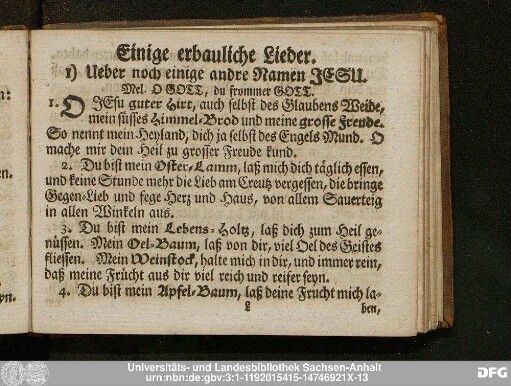 Einige erbauliche Lieder.
1) Ueber noch einige andre Namen JESU.
Mel. O GOTT, du frommer GOTT.
1. O JEsu guter Hirt, auch selbst des Glaubens Weide,
mein süsses Himmel-Brod und meine grosse Freude.
So nennt mein Heyland, dich ja selbst des Engels Mund. O
mache mir dein Heil zu grosser Freude kund.
2. Du bist mein Oster-Lamm, laß mich dich täglich essen,
und keine Stunde mehr die Lieb am Creutz vergessen, die bringe
Gegen-Lieb und fege Herz und Haus, von allem Sauerteig
in allen Winkeln aus.
3. Du bist mein Lebens-Holtz, laß dich zum Heil ge-
nüssen. Mein Oel-Baum, laß von dir, viel Oel des Geistes
fliessen. Mein Weinstock, halte mich in dir, und immer rein,
daß meine Frücht aus dir viel reich und reifer seyn.
4. Du bist mein Apfel-Baum, laß deine Frucht mich la-
ben,
n:
en.
yn.
Universitäts- und Landesbibliothek Sachsen-Anhalt
urn:nbn:de:gbv:3:1-1192015415-14746921X-13
DFG